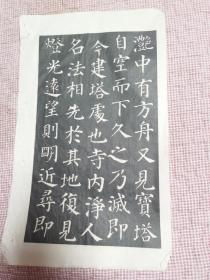 灧中有方舟又見寶塔
自空而下久之乃滅即
今建塔處也寺内淨人
名法相先於其地復見
燈光遠望則明近尋即